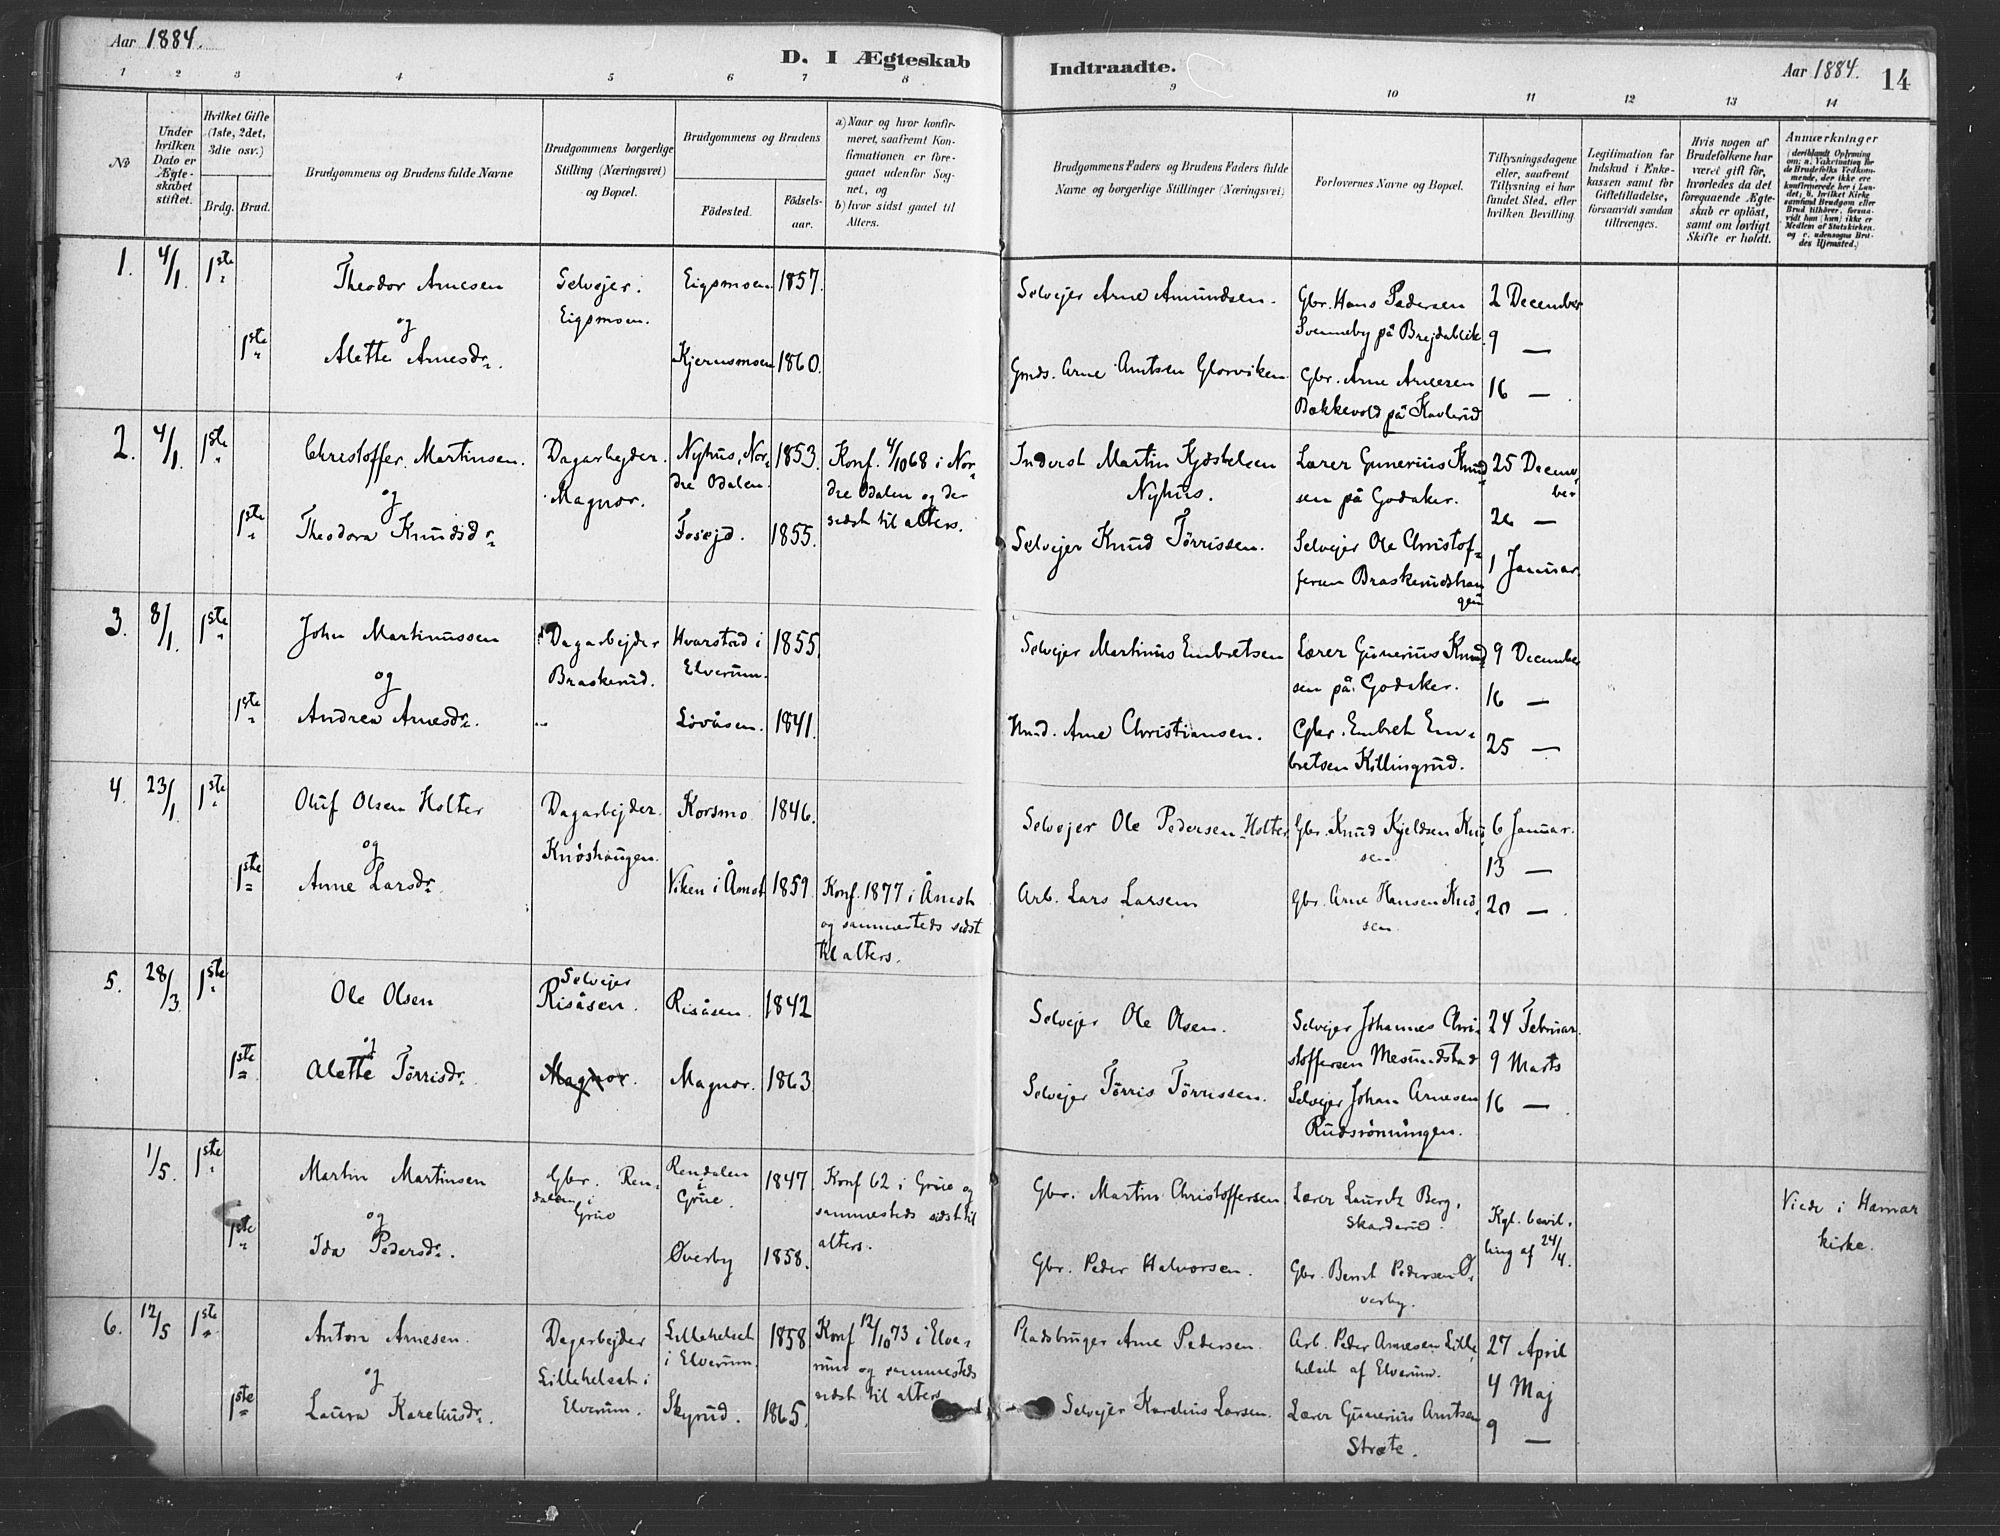 Aar 1884.
D. I Ægteskab Indtraadte.
Aar 1884. 14
1 2 3 4 5 6 7 8 9 10 11 12 13 14
No
Under hvilken Dato er Ægteskabet stiftet.
Hvilket Gifte (1ste, 2det, 3die osv.)
Brdg. Brud.
Brudgommens og Brudens fulde Navne
Brudgommens borgerlige Stilling (Næringsvei) og Bopæl.
Brudgommens og Brudens
Födested. Födsels-aar.
a) Naar og hvor konfirmeret, saafremt Konfirmationen er foregaaet udenfor Sognet, og
b) hvor sidst gaaet til Alters.
Brudgommens Faders og Brudens Faders fulde Navne og borgerlige Stillinger (Næringsvei)
Forlovernes Navne og Bopæl.
Tillysningsdagene eller, saafremt Tillysning ei har fundet Sted, efter hvilken Bevilling.
Legitimation for Indskud i Enkekassen samt for Giftetilladelse, forsaavidt saadan tiltrænges.
Hvis nogen af Brudefolkene har været gift før, hvorledes da det foregaaende Ægteskab er oplöst, samt om lovligt Skifte er holdt.
Anmærkninger
(deriblandt Oplysning om: a. Vakcination for de Brudefolks Vedkommende, der ikke ere konfirmerede her i Landet; b. hvilket Kirkesamfund Brudgom eller Brud tilhörer, forsaavidt han (hun) ikke er Medlem af Statskirken, og c. udensogns Brudes Hjemsted.)
1. 4/1 1ste
Theodor Arnesen
og
1ste Alette Arnesdr.
Selvejer.
Eigsmoen.
Eigsmoen 1857.
Kjernsmoen 1860.
Selvejer Arne Amundsen.
Gmds. Arne Arntsen Glorviken
Gbr. Hans Pedersen
Svenneby på Brejdablik.
Gbr. Arne Arnesen
Bakkevold på Kavlerud
2 December
9 —
16 —
2. 4/1 1ste
Christoffer Martinsen.
og
1ste Theodora Knudsdr.
Dagarbejder.
Magnor.
Nyhus, Nordre Odalen. 1853.
Fosejd. 1855.
Konf. 4/10 68 i Nordre Odalen og der
sidst til alters.
Inderst Martin Kjøstelsen
Nyhus.
Selvejer Knud Tørrissen.
Lærer Gunerius Knudsen på Godaker.
Selvejer Ole Christofferen Braskerudshaugen
25 December
26 —
1 Januar.
3. 8/1 1ste
John Martinussen
og
1ste Andrea Arnesdr.
Dagarbejder
Braskerud.
Hvarstad i
Elverum. 1855.
Løvåsen. 1841.
Selvejer Martinus Embretsen
Hmd. Arne Christiansen.
Lærer Gunerius Knudsen på Godaker.
Gbr. Embret Embretsen Killingrud.
9 December
16 —
25 —
4. 23/1 1ste
Oluf Olsen Holter
og
1ste Anne Larsdr.
Dagarbejder.
Knøshaugen.
Korsmo 1846.
Viken i Åmot 1859
Konf. 1877 i Åmot
og sammesteds sidst
til alters.
Selvejer Ole Pedersen Holter
Arb. Lars Larsen
Gbr. Knud Kjeldsen Knusen
Gbr. Arne Hansen Knusen.
6 Januar.
13 —
20 —
5. 28/3 1ste
Ole Olsen
og
1ste Alette Tørrisdr.
Selvejer
Risåsen.
Magnor.
Risåsen. 1842
Magnor. 1863
Selvejer Ole Olsen.
Selvejer Tørris Tørrissen.
Selvejer Johannes Christoffersen Mesundstad
Selvejer Johan Arnesen
Rudsrønningen.
24 Februar.
9 Marts
16 —
1/5. 1ste
Martin Martinsen
og
1ste Ida Pedersdr.
Gbr. Rendalen i
Grue
Rendalen
i
Grue. 1847.
Øverby 1858.
Konf 62 i Grue og
sammesteds sidst til
alters.
Gbr. Martin Christoffersen.
Gbr. Peder Halvorsen.
Lærer Lauritz Berg,
Skarderud.
Gbr. Bernt Pedersen Øverby.
Kgl. bevilling af 24/4.
Viede i Hamar
kirke.
6. 12/5 1ste
Anton Arnesen.
og
1ste Laura Kareliusdr.
Dagarbejder
Lillehelset i
Elverum.
Lillehelset
i Elverum. 1858
Skyrud. 1865.
Konf 12/10 73 i Elverum og sammesteds
sidst til alters
Pladsbruger Arne Pedersen.
Selvejer Karelius Larsen.
Arb. Peder Arnesen Lillehelset af Elverum.
Lærer Gunerius Arntsen
Stræte.
27 April
4 Maj
9 —